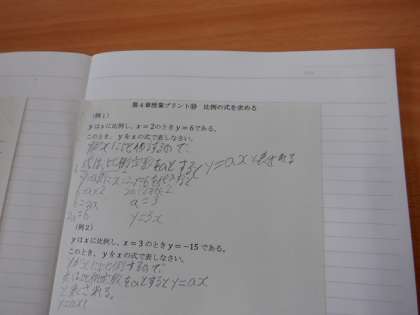 第4章授業プリント⑩ 比例の式を求める
(例1)
yはxに比例し、x=2のときy=6である。
このとき、yをxの式で表しなさい。
yがxに比例するので、
比例定数をaとするとy=axと表される
6=a×2
6=2a
2a=6
a=3
y=3x
(例2)
yはxに比例し、x=3のときy=-15である。
このとき、yをxの式で表しなさい。
yがxに比例するので、
比例定数をaとするとy=ax
と表される。